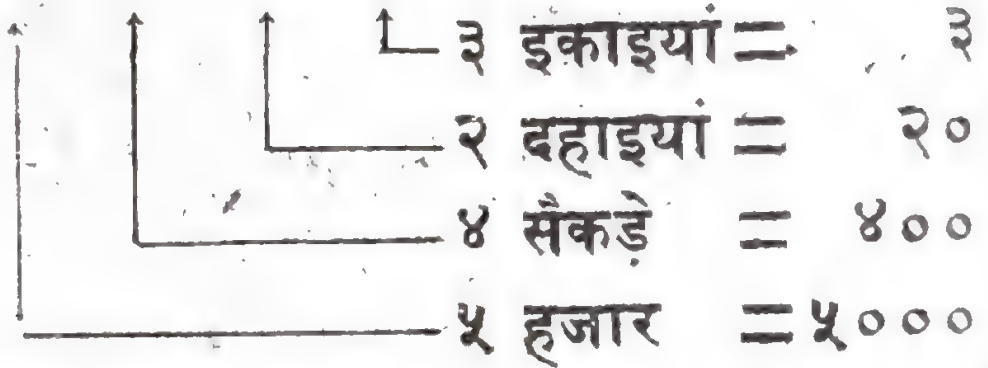 ३ इकाइयां = ३
२ दहाइयां = २०
४ सैंकड़े = ४००
५ हजार = ५०००